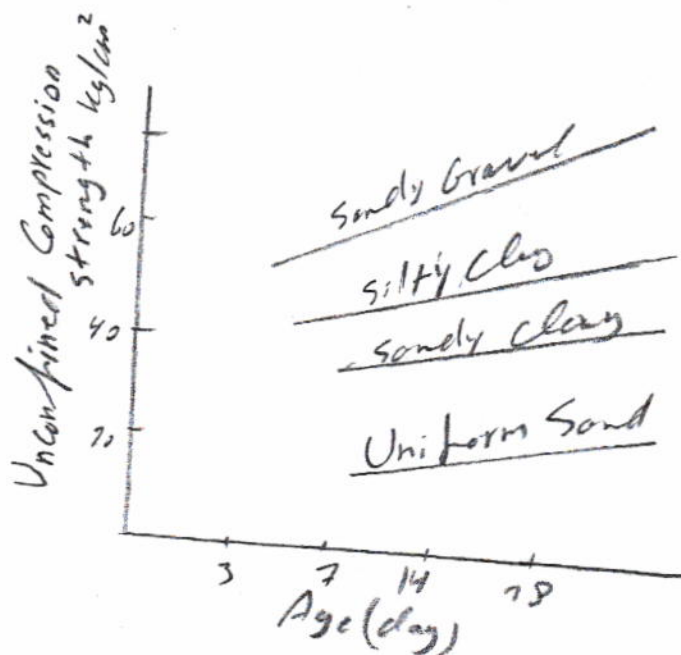 Unconfined Compression
strength kg/cm²
60
40
20
Sandy Gravel
Silty Clay
Sandy Clay
Uniform Sand
3
7
14
28
Age (day)